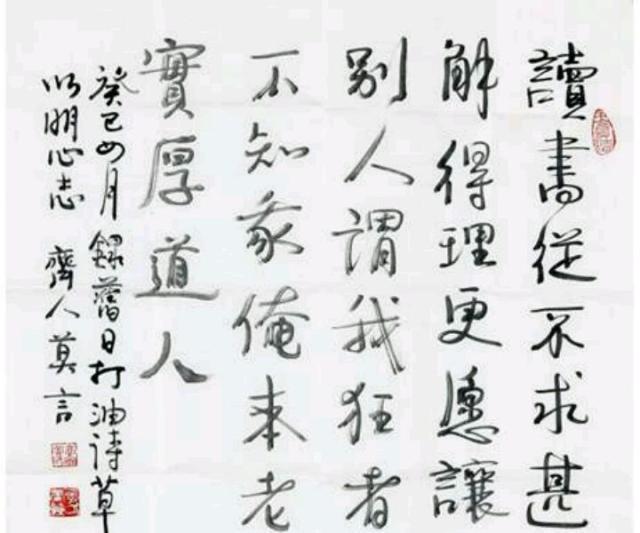 讀書從不求甚
解得理更愿讓
别人謂我狂者
不知我俺本老
實厚道人
癸巳四月錄舊日打油詩草
以明心志 齊人莫言